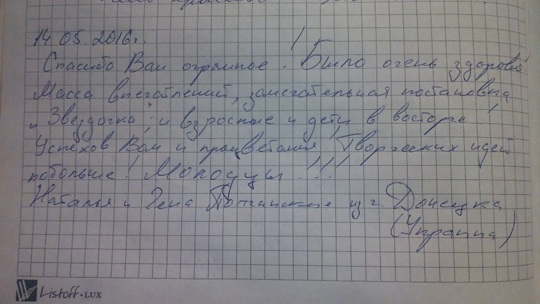 14.05.2016г.
Спасибо Вам огромное! Было очень здорово!
Масса впечатлений, замечательная постановка
„Звездочка" и взрослые и дети в восторге!
Успехов Вам и процветания! Творческих идей
побольше! Молодцы!!!
Наталья и Гена из г. Донецка
(Украина)
Listoff-LUX